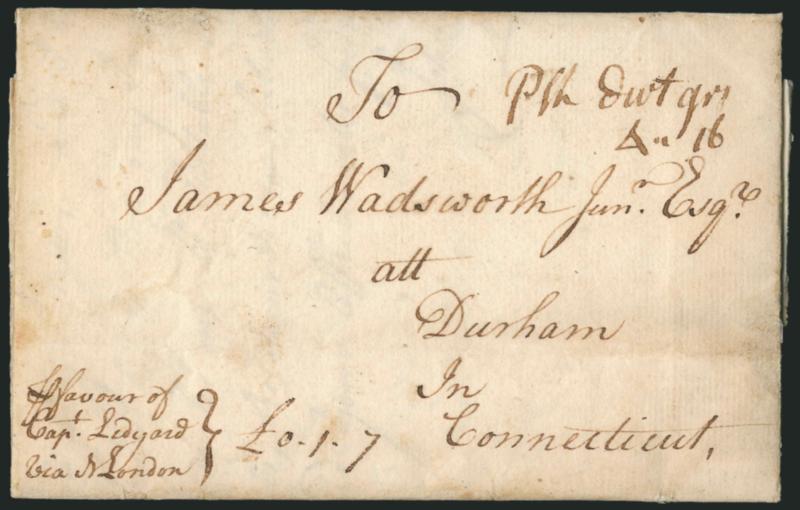 To
Psh dwt grs
4 " 16
James Wadsworth Junr. Esqr.
att
Durham
In
Connecticut,
favour of
Capt. Ledyard
via N London
£0-1-7